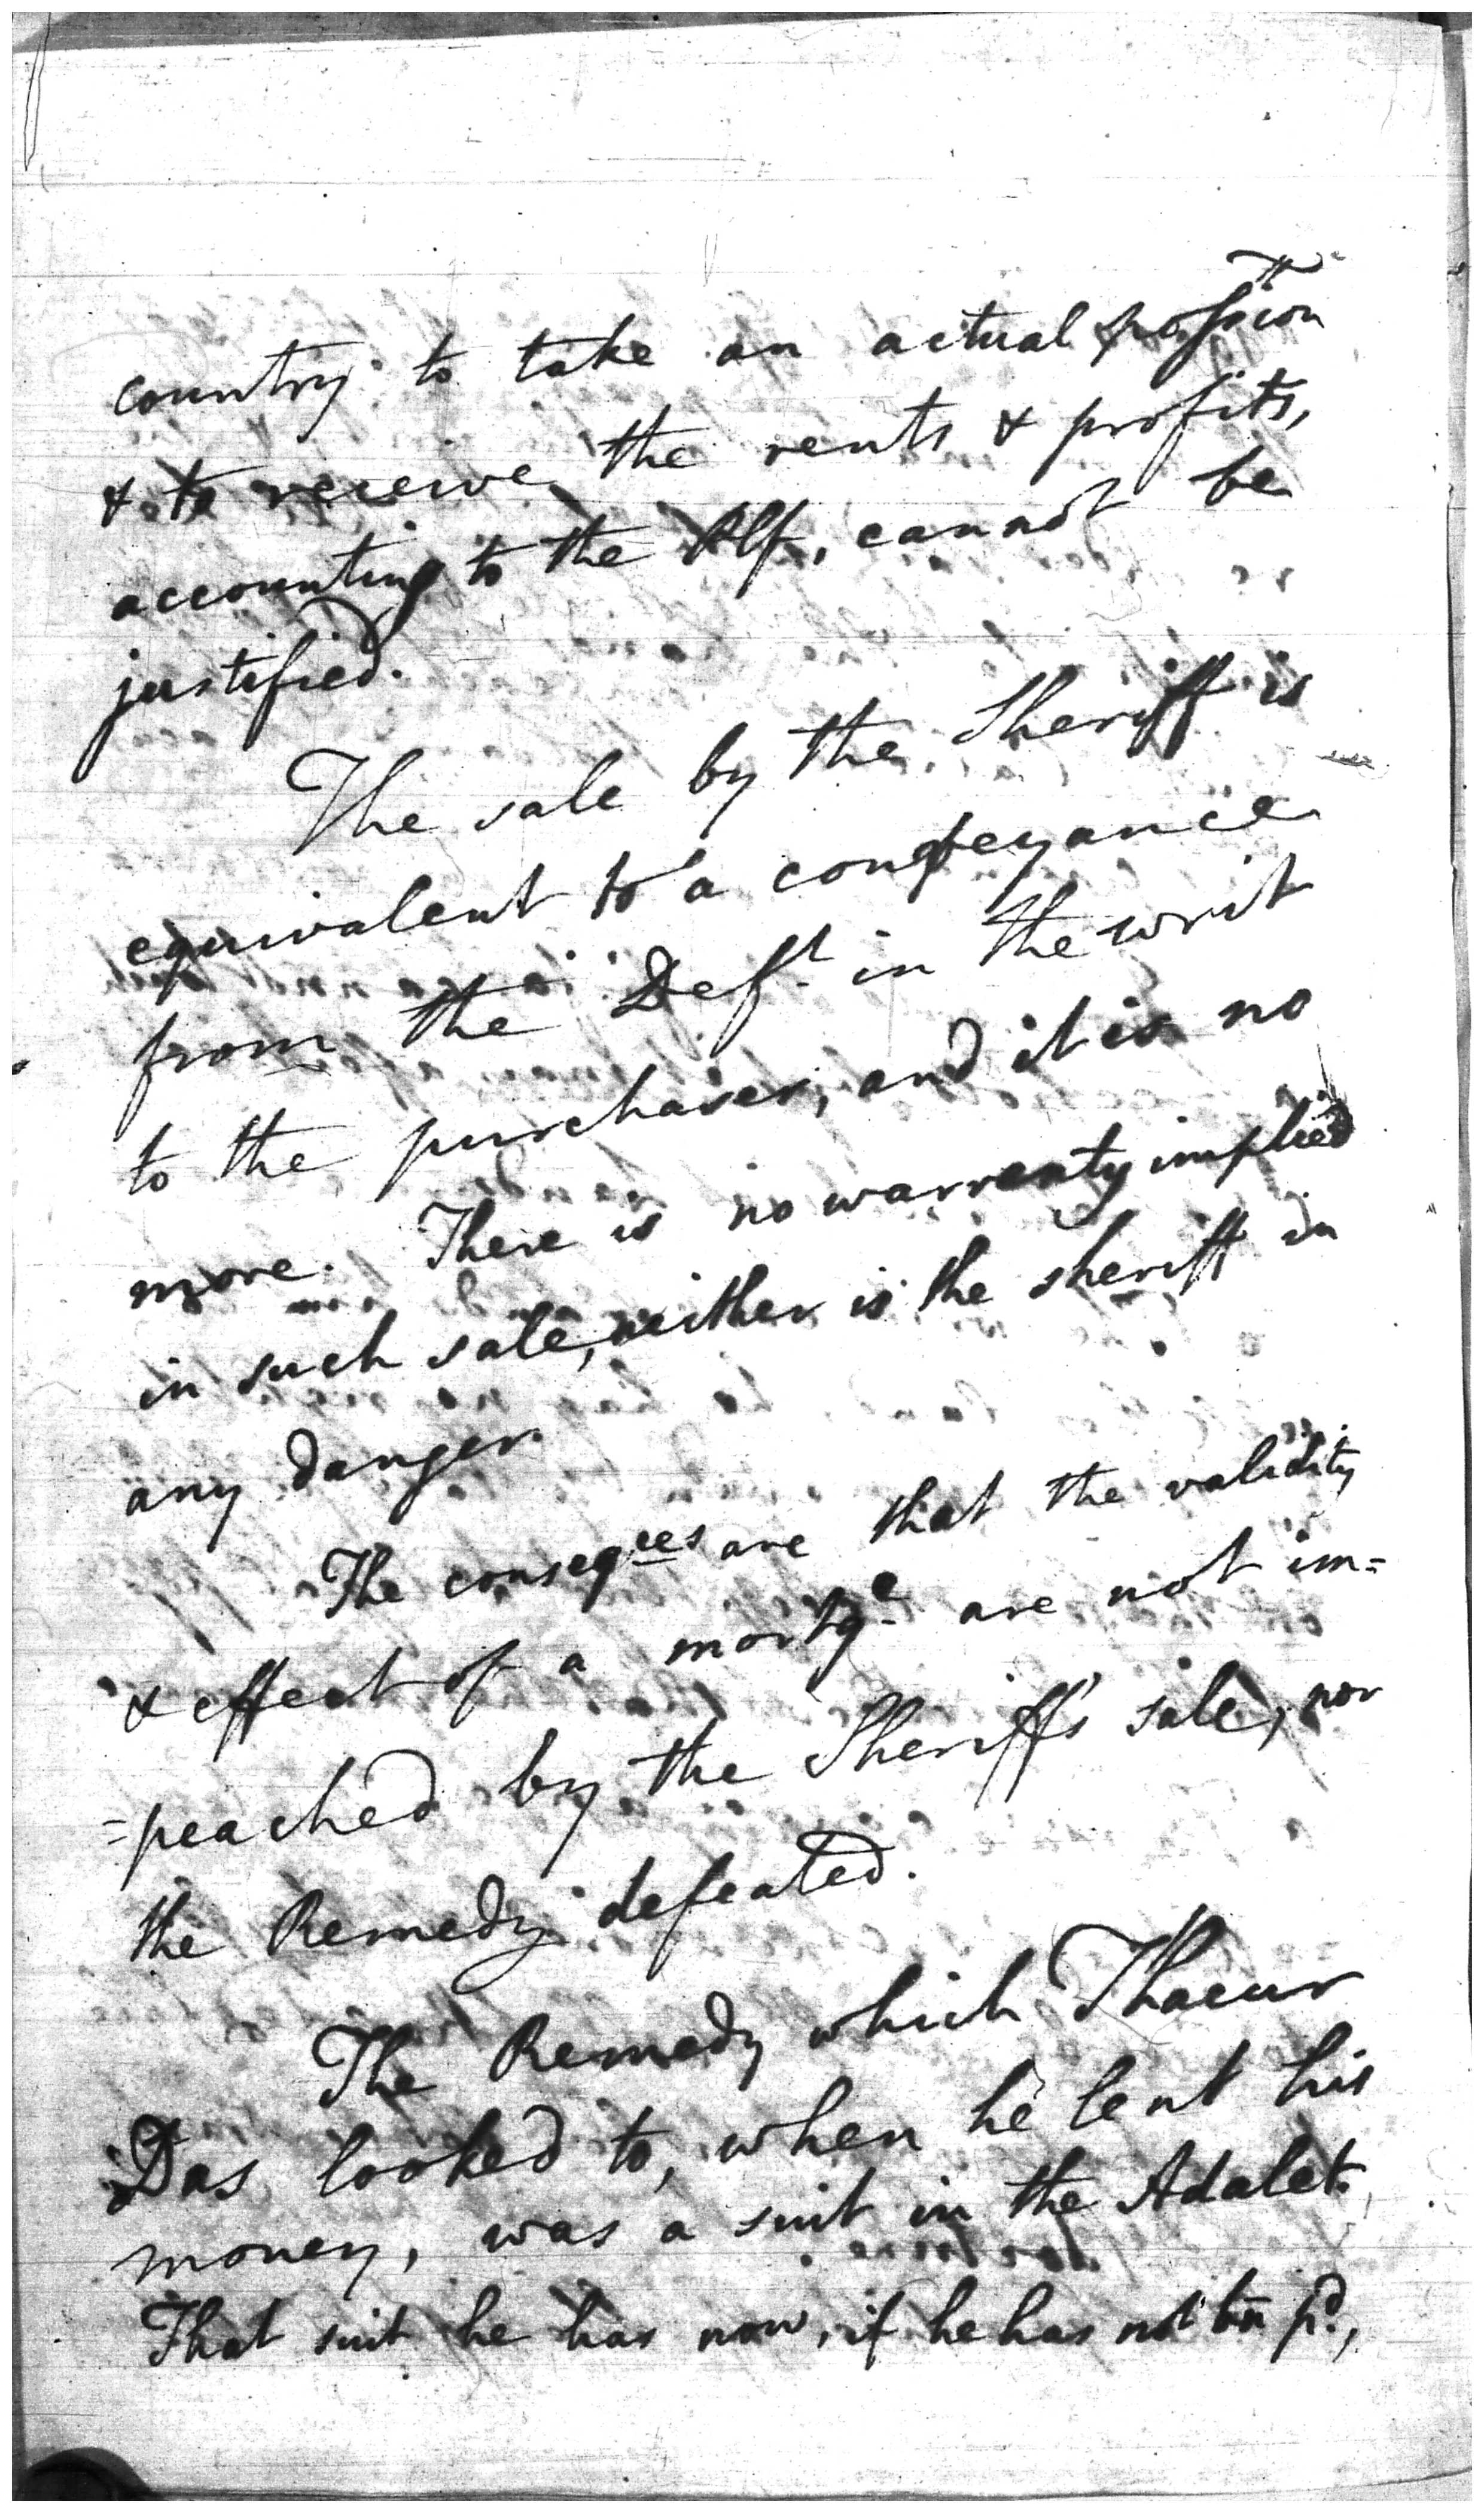 country to take an actual possion
& to receive the rents & profits,
accounting to the Plf, cannot be
justified.
The sale by the Sheriff is
equivalent to a conveyance
from the Deft. in the writ
to the purchaser, and it is no
more. There is no warranty implied
in such sale, neither is the sheriff in
any danger.
The conseqces are that the validity
& effect of a mortge are not im=
=peached by the Sheriff's sale, nor
the Remedy defeated.
The Remedy which Thacur
Das looked to, when he lent his
money, was a suit in the Adalet.
That suit he has now, if he has not bn pd,